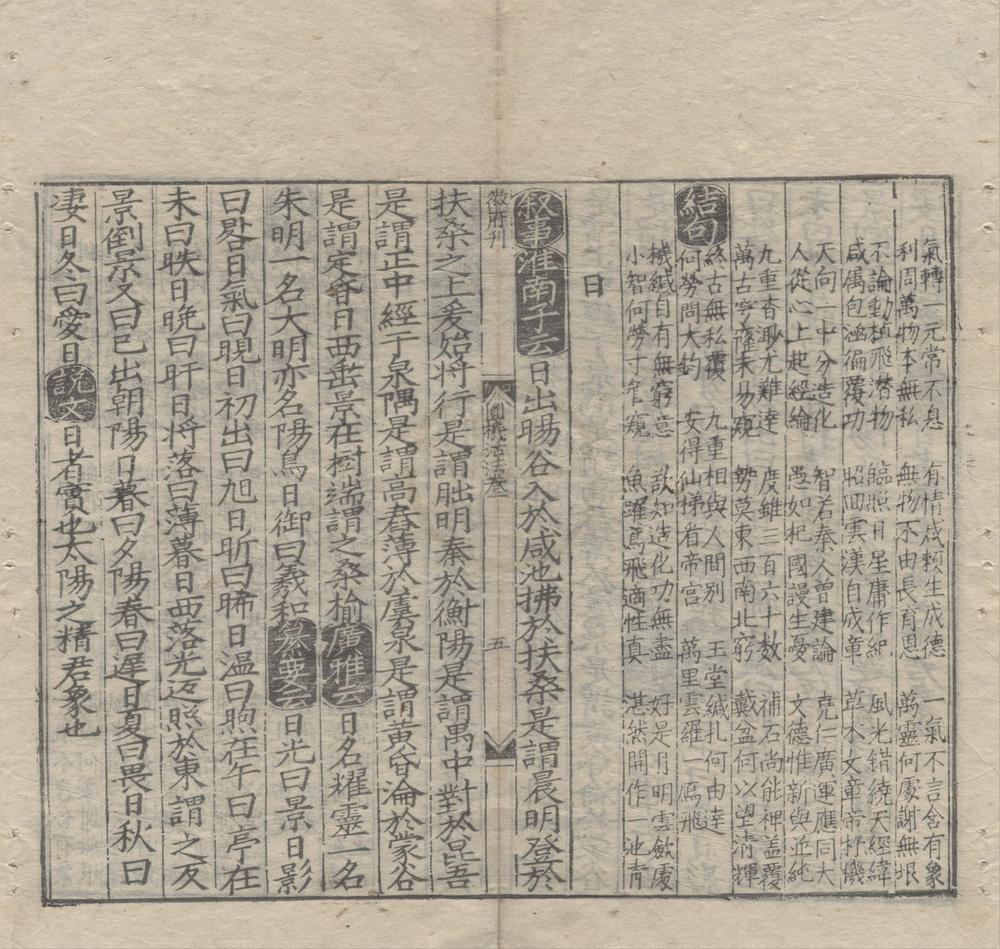 氣轉一元常不息　有情咸賴生成德　一氣不言含有象
利周萬物本無私　無物不由長育恩　萬靈何處謝無垠
不論動植飛潛物　臨照日星庸作紀　風光錯繞天經緯
咸属包涵徧覆功　昭回雲漢自成章　草木文章帝杼機
天向一中分造化　智若秦人曾建論　克仁廣運應同大
人從心上起經綸　愚如杞國謾生憂　文德惟新與並純
九重杳渺尤難達　度雖三百六十数　補石尚能裨盖覆
萬古穹窿未易窺　勢莫東西南北窮　戴盆何以望清輝
結句
終古無私覆　九重相與人間別　玉堂緘扎何由達
何勞問大鈞　安得仙梯看帝宮　萬里雲羅一鴈飛
機緘自有無窮意　欲知造化功無盡　好是月明雲歛處
小智何勞寸管窺　魚躍鳶飛適性真　湛然開作一池青
日
叙事淮南子云日出暘谷入於咸池拂於扶桑是謂晨明登於
徽府刊
圓機活法卷
五
扶桑之上爰始将行是謂朏明秦於衡陽是謂禺中對於昆吾
是謂正中經于泉隅是謂高舂薄於虞泉是謂黄昏淪於蒙谷
是謂定昏日西垂景在樹端謂之桑榆廣雅云日名耀靈一名
朱明一名大明亦名陽烏日御曰羲和纂要云日光曰景日影
曰晷日氣曰晛日初出曰旭日昕曰晞日温曰煦在午曰亭在
未曰昳日晚曰旰日将落曰薄暮日西落光返照於東謂之反
景倒景文曰已出朝陽日暮曰夕陽春曰遲日夏曰畏日秋曰
凄日冬曰愛日説文日者實也太陽之精君象也